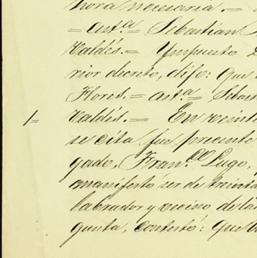 hora necesaria. =
= ant.ª Sebastian
Valdés. =
rior decreto, dijo: Que
Flores. = ant.ª Sebas
Valdés. = En veinte
1=
se cita, fué presente
gado, Fran.co Lugo,
manifestó ser de treinta
labrador y vecino de la
gunta, contestó: Que